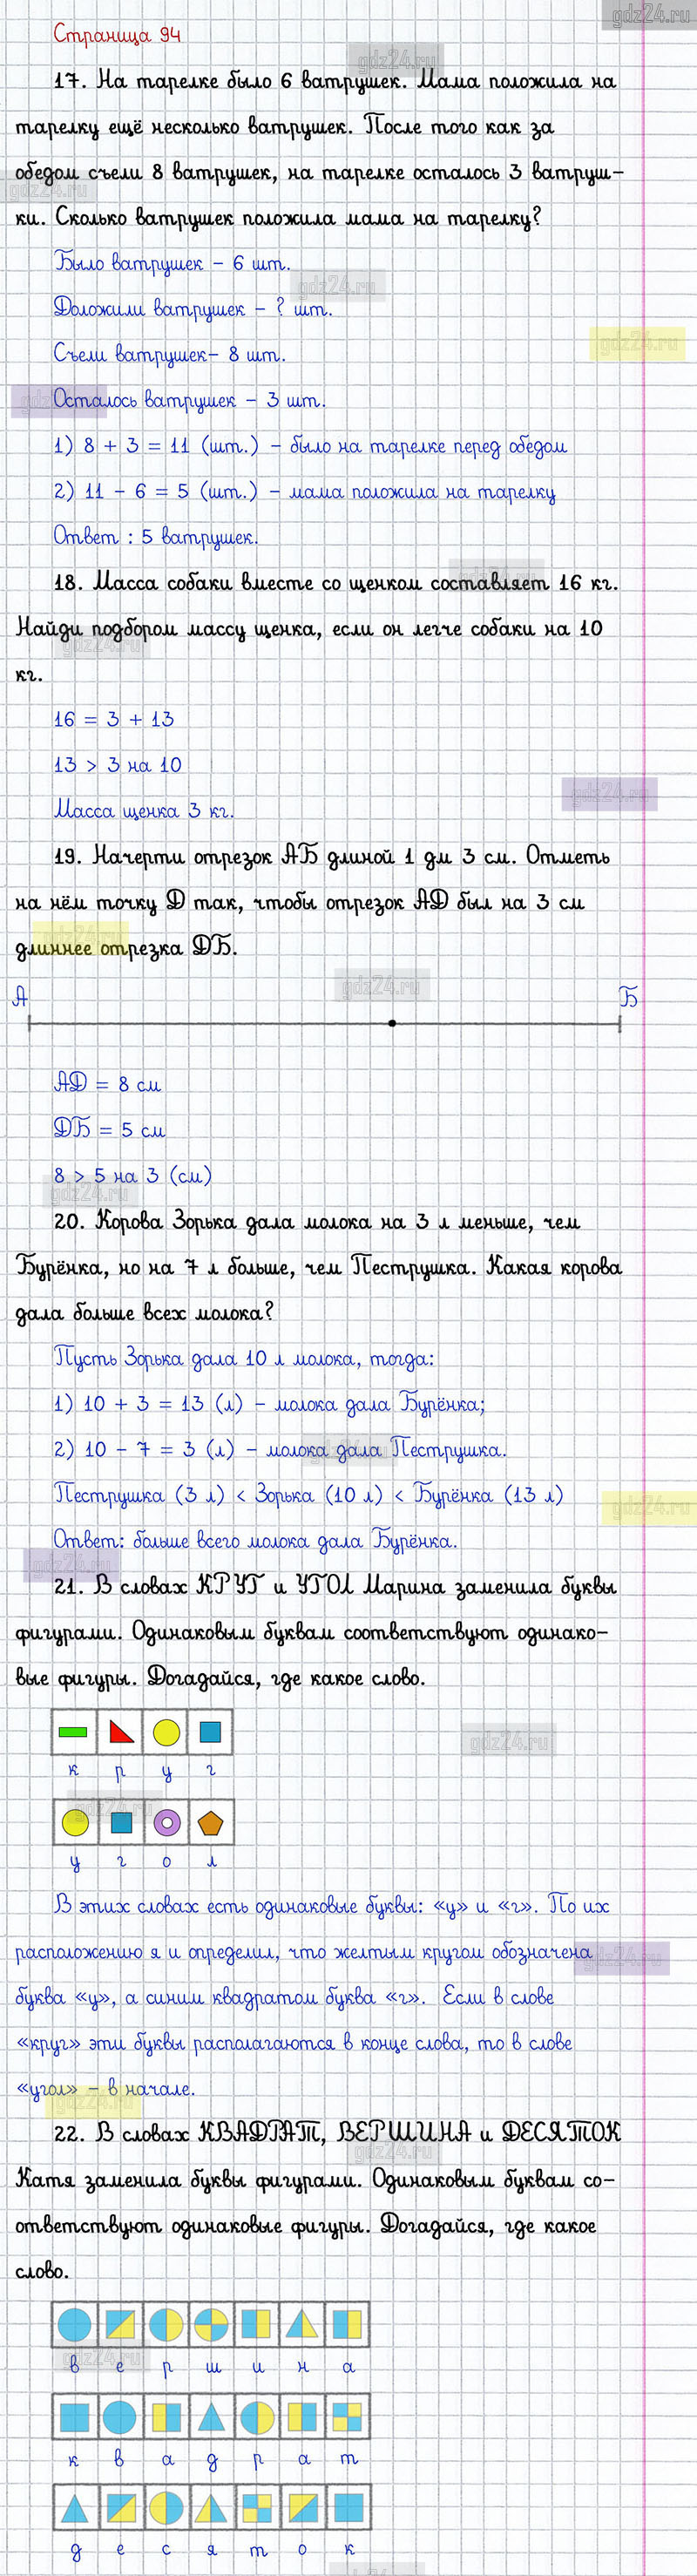 gdz24.ru
Страница 94
gdz24.ru
17. На тарелке было 6 ватрушек. Мама положила на
тарелку ещё несколько ватрушек. После того как за
обедом съели 8 ватрушек, на тарелке осталось 3 ватруш-
gdz24.ru
ки. Сколько ватрушек положила мама на тарелку?
Было ватрушек – 6 шт.
gdz24.ru
Доложили ватрушек – ? шт.
gdz24.ru
Съели ватрушек– 8 шт.
gdz24.ru
Осталось ватрушек – 3 шт.
1) 8 + 3 = 11 (шт.) – было на тарелке перед обедом
2) 11 – 6 = 5 (шт.) – мама положила на тарелку
Ответ : 5 ватрушек.
gdz24.ru
18. Масса собаки вместе со щенком составляет 16 кг.
Найди подбором массу щенка, если он легче собаки на 10
gdz24.ru
кг.
16 = 3 + 13
13 > 3 на 10
gdz24.ru
Масса щенка 3 кг.
19. Начерти отрезок АБ длиной 1 дм 3 см. Отметь
на нём точку Д так, чтобы отрезок АД был на 3 см
gdz24.ru
длиннее отрезка ДБ.
gdz24.ru
А Б
АД = 8 см
ДБ = 5 см
8 > 5 на 3 (см)
gdz24.ru
20. Корова Зорька дала молока на 3 л меньше, чем
Бурёнка, но на 7 л больше, чем Пеструшка. Какая корова
дала больше всех молока?
Пусть Зорька дала 10 л молока, тогда:
1) 10 + 3 = 13 (л) – молока дала Бурёнка;
2) 10 – 7 = 3 (л) – молока дала Пеструшка.
gdz24.ru
Пеструшка (3 л) < Зорька (10 л) < Бурёнка (13 л)
gdz24.ru
Ответ: больше всего молока дала Бурёнка.
gdz24.ru
21. В словах КРУГ и УГОЛ Марина заменила буквы
фигурами. Одинаковым буквам соответствуют одинако-
вые фигуры. Догадайся, где какое слово.
gdz24.ru
к р у г
gdz24.ru
у г о л
В этих словах есть одинаковые буквы: «у» и «г». По их
расположению я и определил, что желтым кругом обозначена
gdz24.ru
буква «у», а синим квадратом буква «г». Если в слове
«круг» эти буквы располагаются в конце слова, то в слове
«угол» – в начале.
gdz24.ru
22. В словах КВАДРАТ, ВЕРШИНА и ДЕСЯТОК
gdz24.ru
Катя заменила буквы фигурами. Одинаковым буквам со-
ответствуют одинаковые фигуры. Догадайся, где какое
слово.
gdz24.ru
в е р ш и н а
к в а д р а т
д е с я т о к
gdz24.ru